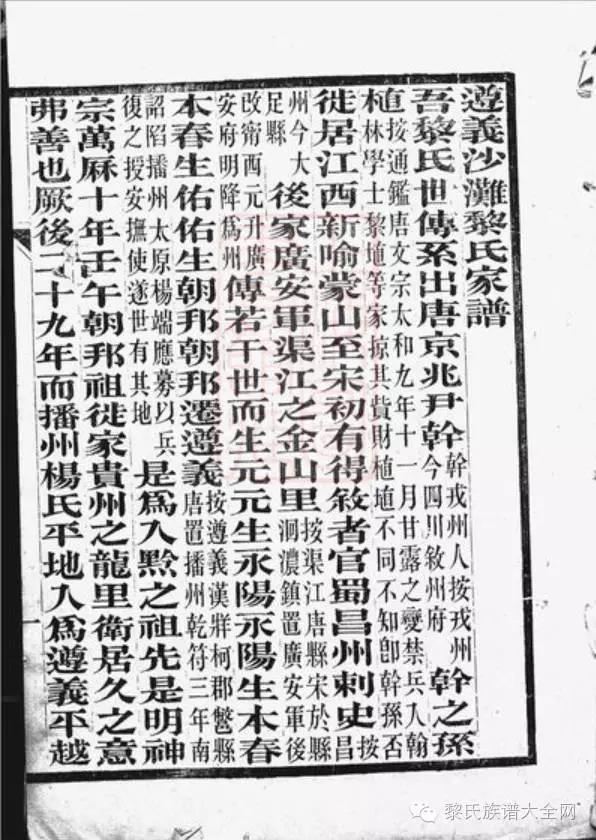 遵義沙灘黎氏家譜
吾黎氏世傳系出唐京兆尹幹幹戎州人按戎州今四川敘州府幹之孫
植按通鑑唐文宗太和九年十一月甘露之變禁兵入翰林學士黎埴等家掠其貲財植埴不同不知卽幹孫否
徙居江西新喻蒙山至宋初有得敘者官蜀昌州刺史按昌
州今大足縣後家廣安軍渠江之金山里按渠江唐縣宋於縣洄濃鎮置廣安軍後
改甯西元升廣安府明降爲州傳若干世而生元元生永陽永陽生本春
本春生佑佑生朝邦朝邦遷遵義按遵義漢牂柯郡鼈縣唐置播州乾符三年南
詔陷播州太原楊端應募以兵復之授安撫使遂世有其地是爲入黔之祖先是明神
宗萬厤十年壬午朝邦祖徙家貴州之龍里衛居久之意
弗善也厥後二十九年而播州楊氏平地入爲遵義平越
一
黎氏族谱大全网